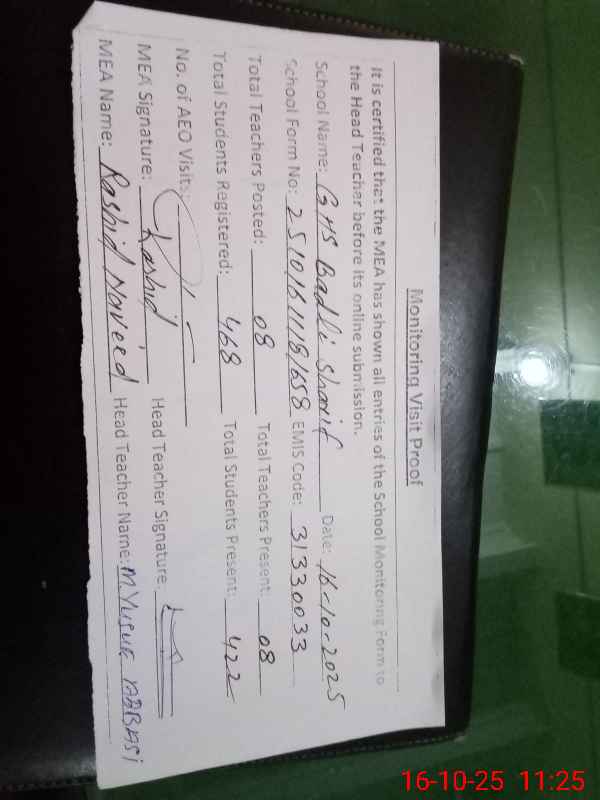 Monitoring Visit Proof
It is certified that the MEA has shown all entries of the School Monitoring Form to
the Head Teacher before its online submission.
School Name: GHS Badli Sharif Date: 16-10-2025
School Form No: 25101611181658 EMIS Code: 31330033
Total Teachers Posted: 08 Total Teachers Present: 08
Total Students Registered: 468 Total Students Present: 422
No. of AEO Visits:
MEA Signature: Rashid Head Teacher Signature:
MEA Name: Rashid Naveed Head Teacher Name: M. Yusuf ABBASi
16-10-25 11:25